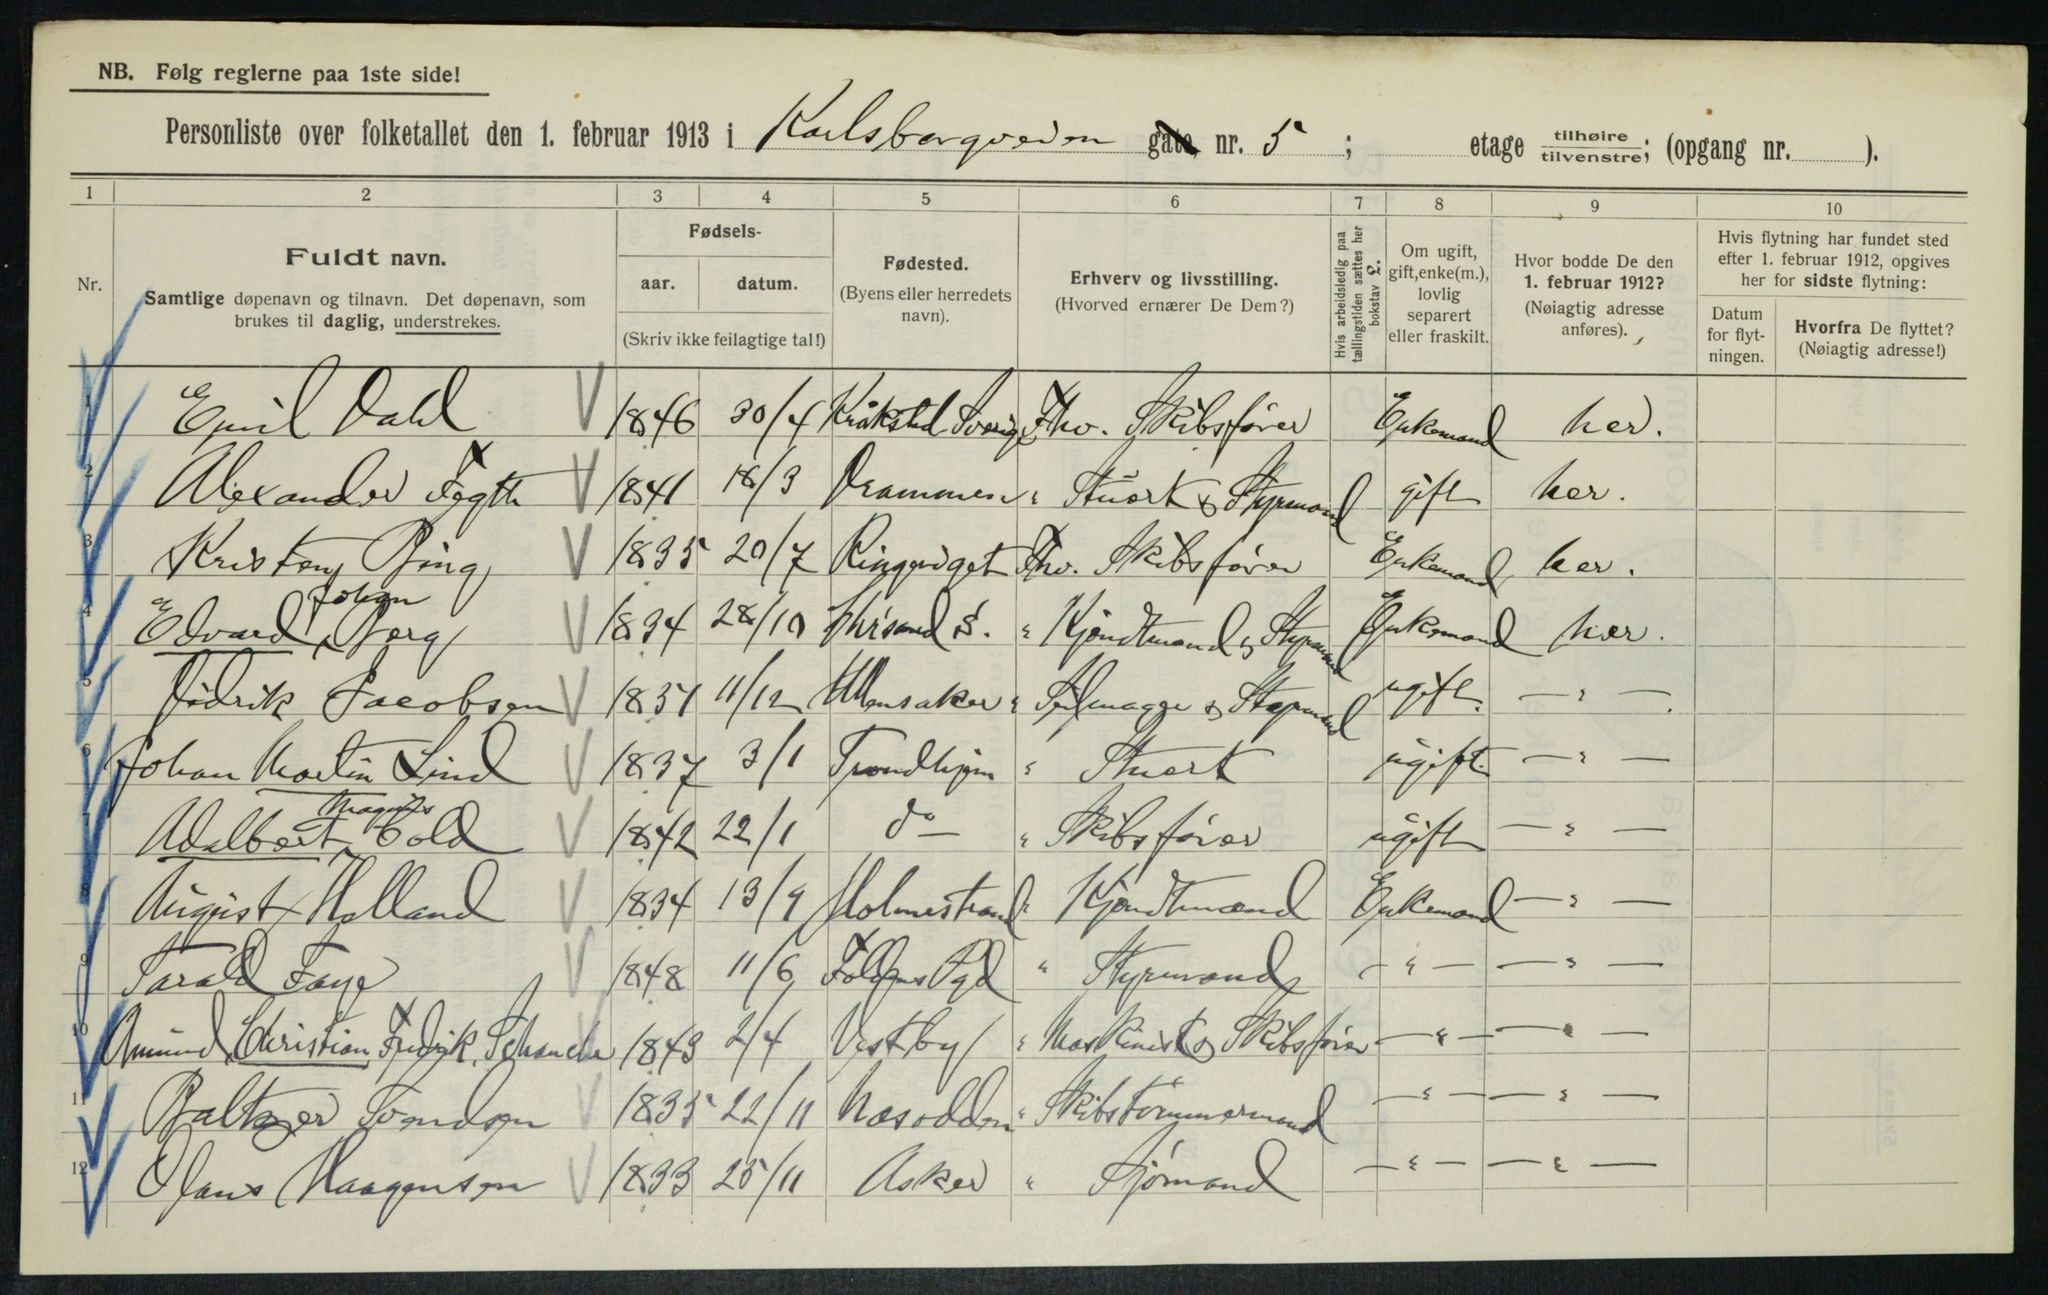 NB. Følg reglerne paa 1ste side!
Personliste over folketallet den 1. februar 1913 i Karlsborgveien gate, nr. 5 ; etage tilhøire / tilvenstre; (opgang nr. ).
1 2 3 4 5 6 7 8 9 10
Nr.
Fuldt navn.
Samtlige døpenavn og tilnavn. Det døpenavn, som
brukes til daglig, understrekes.
Fødsels-
aar. datum.
(Skriv ikke feilagtige tal!)
Fødested.
(Byens eller herredets
navn).
Erhverv og livsstilling.
(Hvorved ernærer De Dem?)
Hvis arbeidsledig paa
tællingstiden sættes her
bokstav L.
Om ugift,
gift, enke(m.),
lovlig
separert
eller fraskilt.
Hvor bodde De den
1. februar 1912?
(Nøiagtig adresse
anføres).
Hvis flytning har fundet sted
efter 1. februar 1912, opgives
her for sidste flytning:
Datum
for flyt-
ningen.
Hvorfra De flyttet?
(Nøiagtig adresse!)
1 Emil Dahl 1846 30/4 Kråksted Sverige Fhv. Skibsfører Enkemand her.
2 Alexander Fegth 1841 18/3 Drammen " Stuert & Styrmand gift her.
3 Kristen Bing 1835 20/7 Ringeriget Fhv. Skibsfører Enkemand her.
4 Edvard Johan Berg 1834 28/10 Chrisand S. " Kjendtmand & Styrmand Enkemand her.
5 Didrik Jacobsen 1831 11/12 Ullensaker " & Styrmand ugift. — " —
6 Johan Martin Lind 1837 3/1 Trondhjem " Stuert ugift. — " —
7 Adalbert Magnus Cold 1842 22/1 do — " Skibsfører ugift — " —
8 August Holland 1834 13/9 Holmestrand " Kjendtmand Enkemand — " —
9 Tarald Faye 1848 11/6 " Styrmand — " — — " —
10 Amund Christian Fredrik Schanche 1843 2/4 Vestby " Maskinist & Skibsfører — " — — " —
11 Baltzer Svendsen 1835 22/11 Næsodden " Skibstømmermand — " — — " —
12 Olaus Haagensen 1833 25/11 Asker " Sjømand — " — — " —